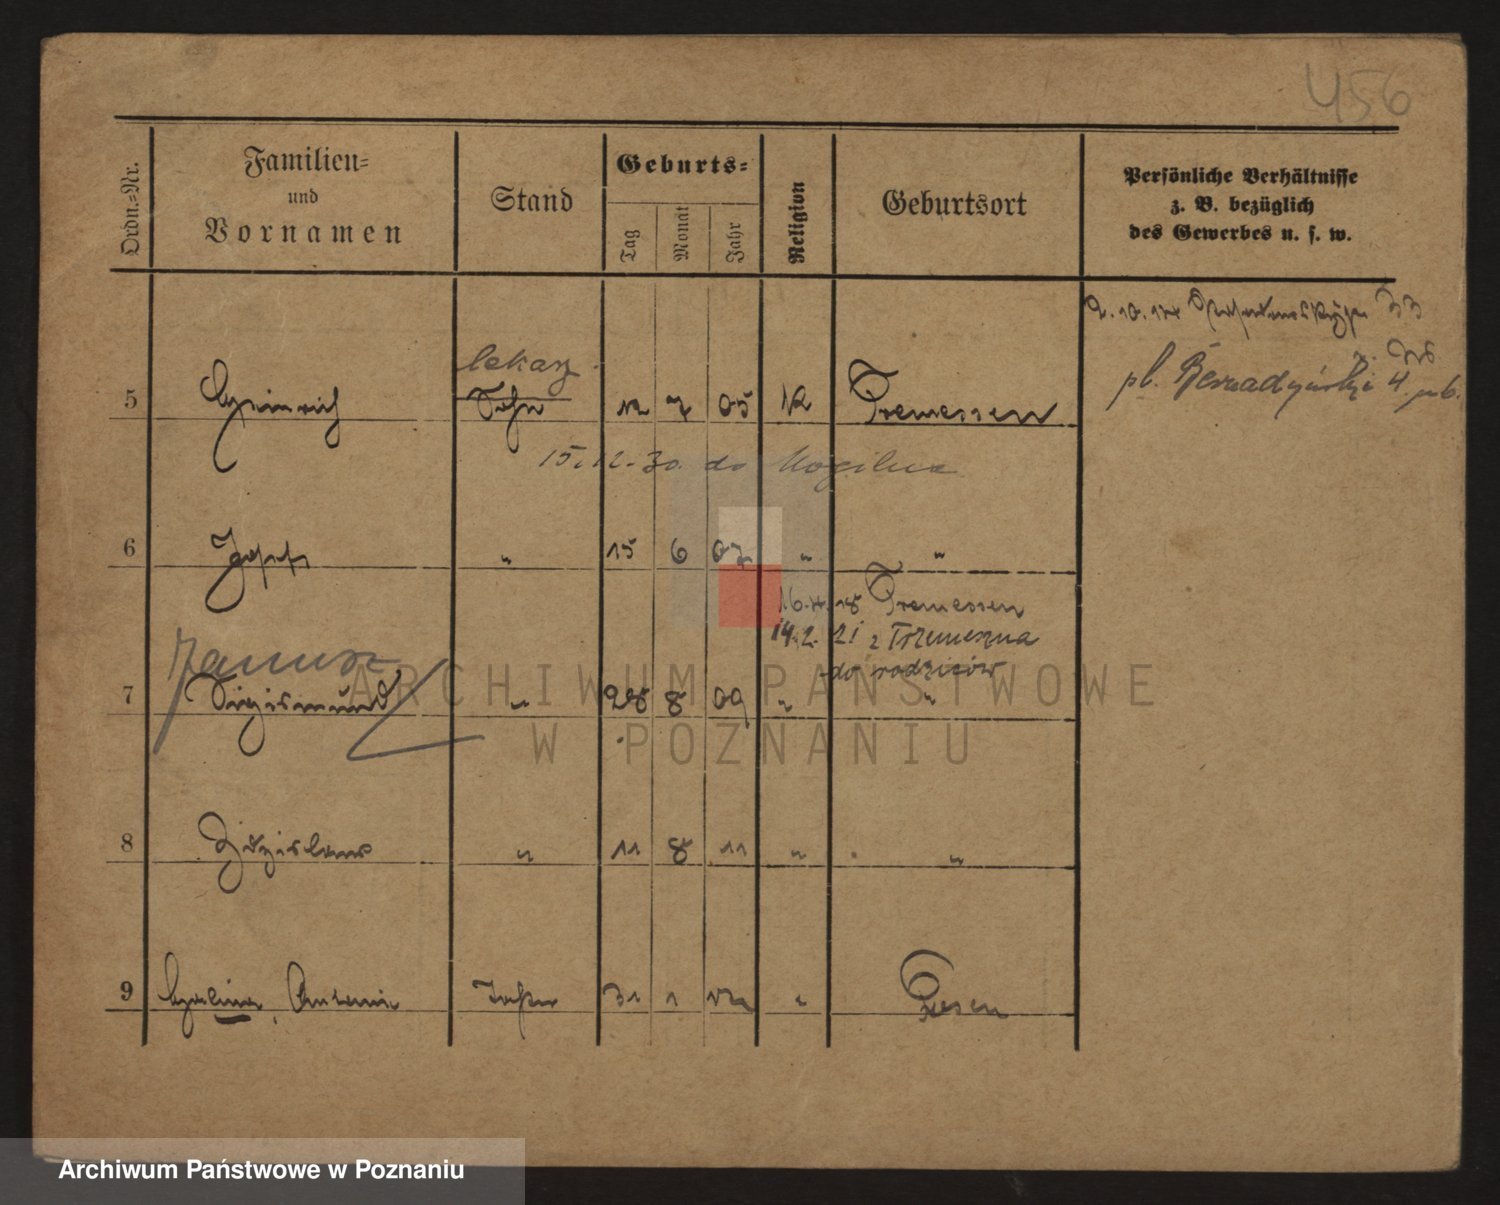 456
Ordn.=Nr.
Familien=
und
Vornamen
Stand
Geburts=
Tag
Monat
Jahr
Religion
Geburtsort
Persönliche Verhältnisse
z. B. bezüglich
des Gewerbes u. s. w.
2.10.14 33
pl. Bernadyński 4
lekarz
5 Heinrich Sohn 12 7 05 K Tremessen
15.12.30 do Mogilna
6 Josef " 15 6 07 " "
16.4.18 Tremessen
14.2.21 z Trzemeszna
do rodziców
Janusz
7 Sigismund " 28 8 09 " "
8 Zdzislaus " 11 8 11 " "
9 Halina, Antonie Tochter 31 1 12 " Posen
ARCHIWUM PAŃSTWOWE
W POZNANIU
Archiwum Państwowe w Poznaniu